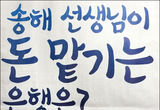 송해 선생님이
돈 맡기는
은행은?